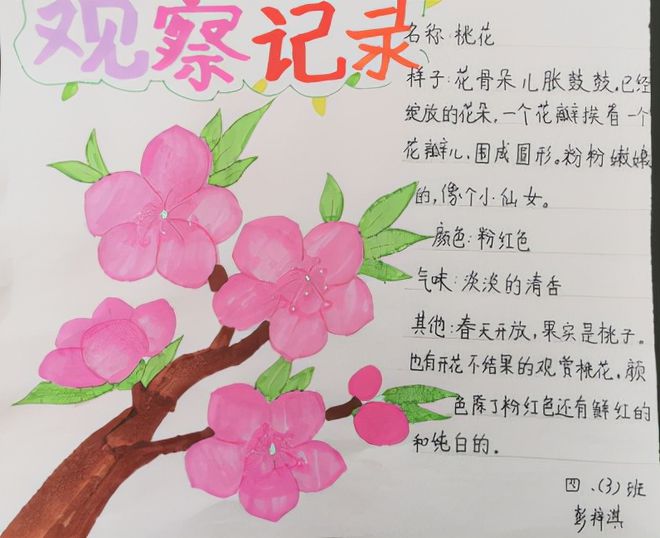 观察记录
名称:桃花
样子:花骨朵儿胀鼓鼓,已经
绽放的花朵,一个花瓣挨着一个
花瓣儿,围成圆形。粉粉嫩嫩
的,像个小仙女。
颜色:粉红色
气味:淡淡的清香
其他:春天开放,果实是桃子。
也有开花不结果的观赏桃花,颜
色除了粉红色还有鲜红的
和纯白的。
四、(3)班
彭梓淇